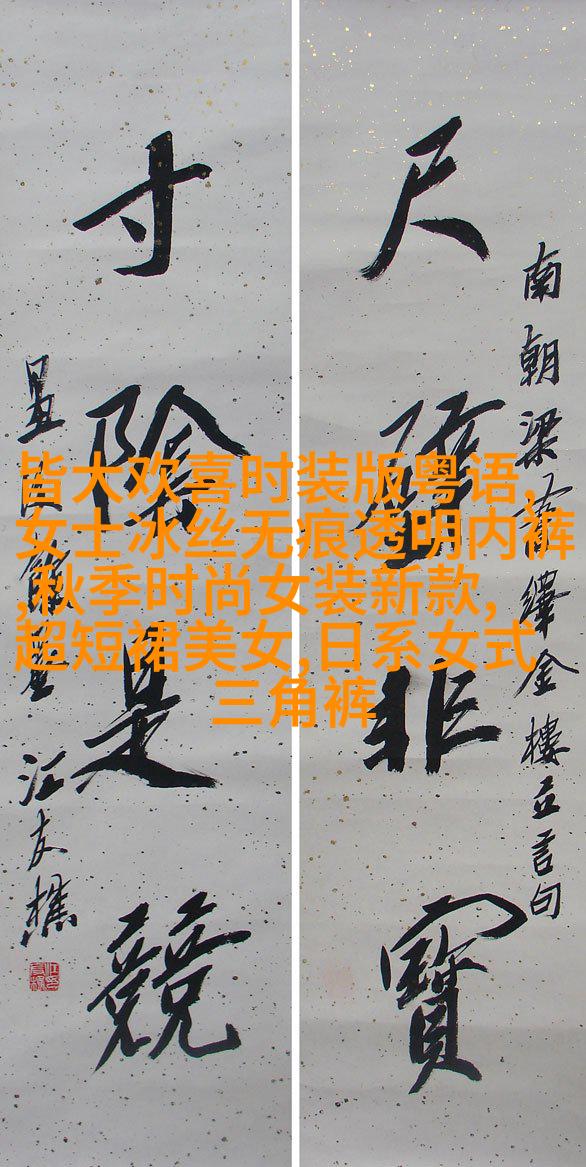 尺璧非寶
南朝梁蕭繹金樓立言句
寸陰是競
江友樵
皆大欢喜时装版粤语,
女士冰丝无痕透明内裤
,秋季时尚女装新款,
超短裙美女,日系女式
三角裤